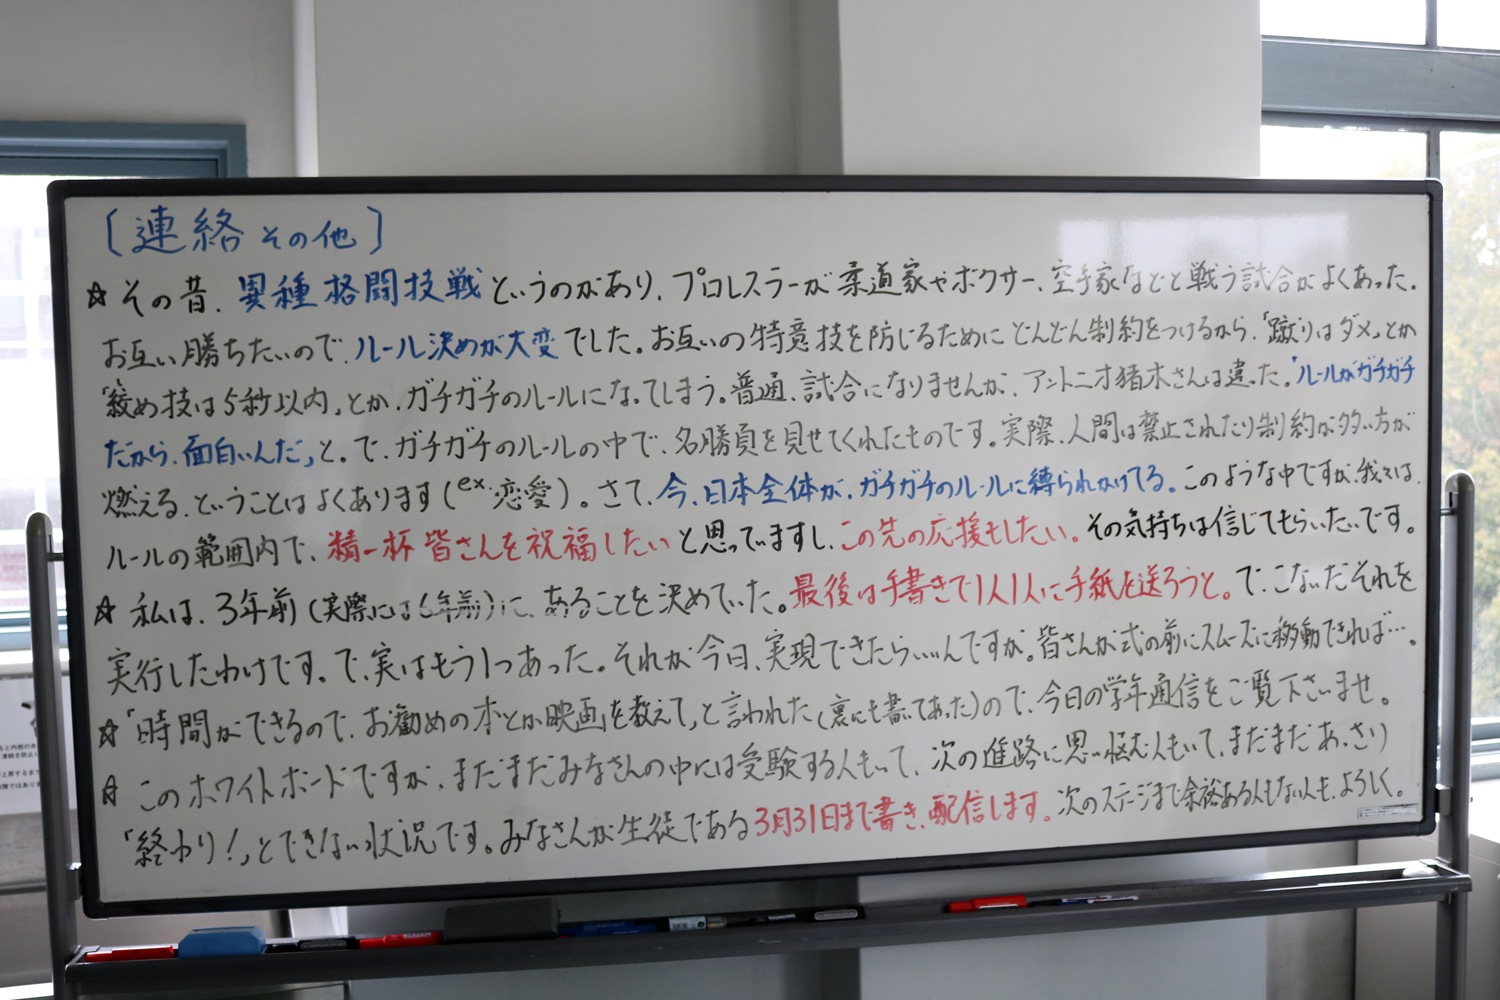 〔連絡 その他〕
☆その昔、異種格闘技戦というのがあり、プロレスラーが柔道家やボクサー、空手家などと戦う試合がよくあった。
お互い勝ちたいので、ルール決めが大変でした。お互いの特意技を防じるためにどんどん制約をつけるから、「蹴りはダメ」とか
「絞め技は5秒以内」とか、ガチガチのルールになってしまう。普通、試合になりませんが、アントニオ猪木さんは違った。「ルールがガチガチ
だから、面白いんだ」と。で、ガチガチのルールの中で、名勝負を見せてくれたものです。実際、人間は禁止されたり制約が多い方が
燃える、ということはよくあります(ex.恋愛)。さて、今、日本全体が、ガチガチのルールに縛られかけてる。このような中ですが、我々は、
ルールの範囲内で、精一杯 皆さんを祝福したいと思っていますし、この先の応援もしたい。その気持ちは信じてもらいたいです。
☆私は、3年前(実際には6年前)に、あることを決めていた。最後は手書きで1人1人に手紙を送ろうと。で、こないだそれを
実行したわけです。で、実はもう1つあった。それが今日、実現できたらいいんですが。皆さんが式の前にスムーズに移動できれば…。
☆「時間ができるので、お勧めの本とか映画を教えて」と言われた(裏にも書いてあった)ので、今日の学年通信をご覧下さいませ。
☆このホワイトボードですが、まだまだみなさんの中には受験する人もいて、次の進路に思い悩む人もいて、まだまだあっさり
「終わり!」とできない状況です。みなさんが生徒である3月31日まで書き、配信します。次のステージまで余裕ある人もない人も、よろしく。